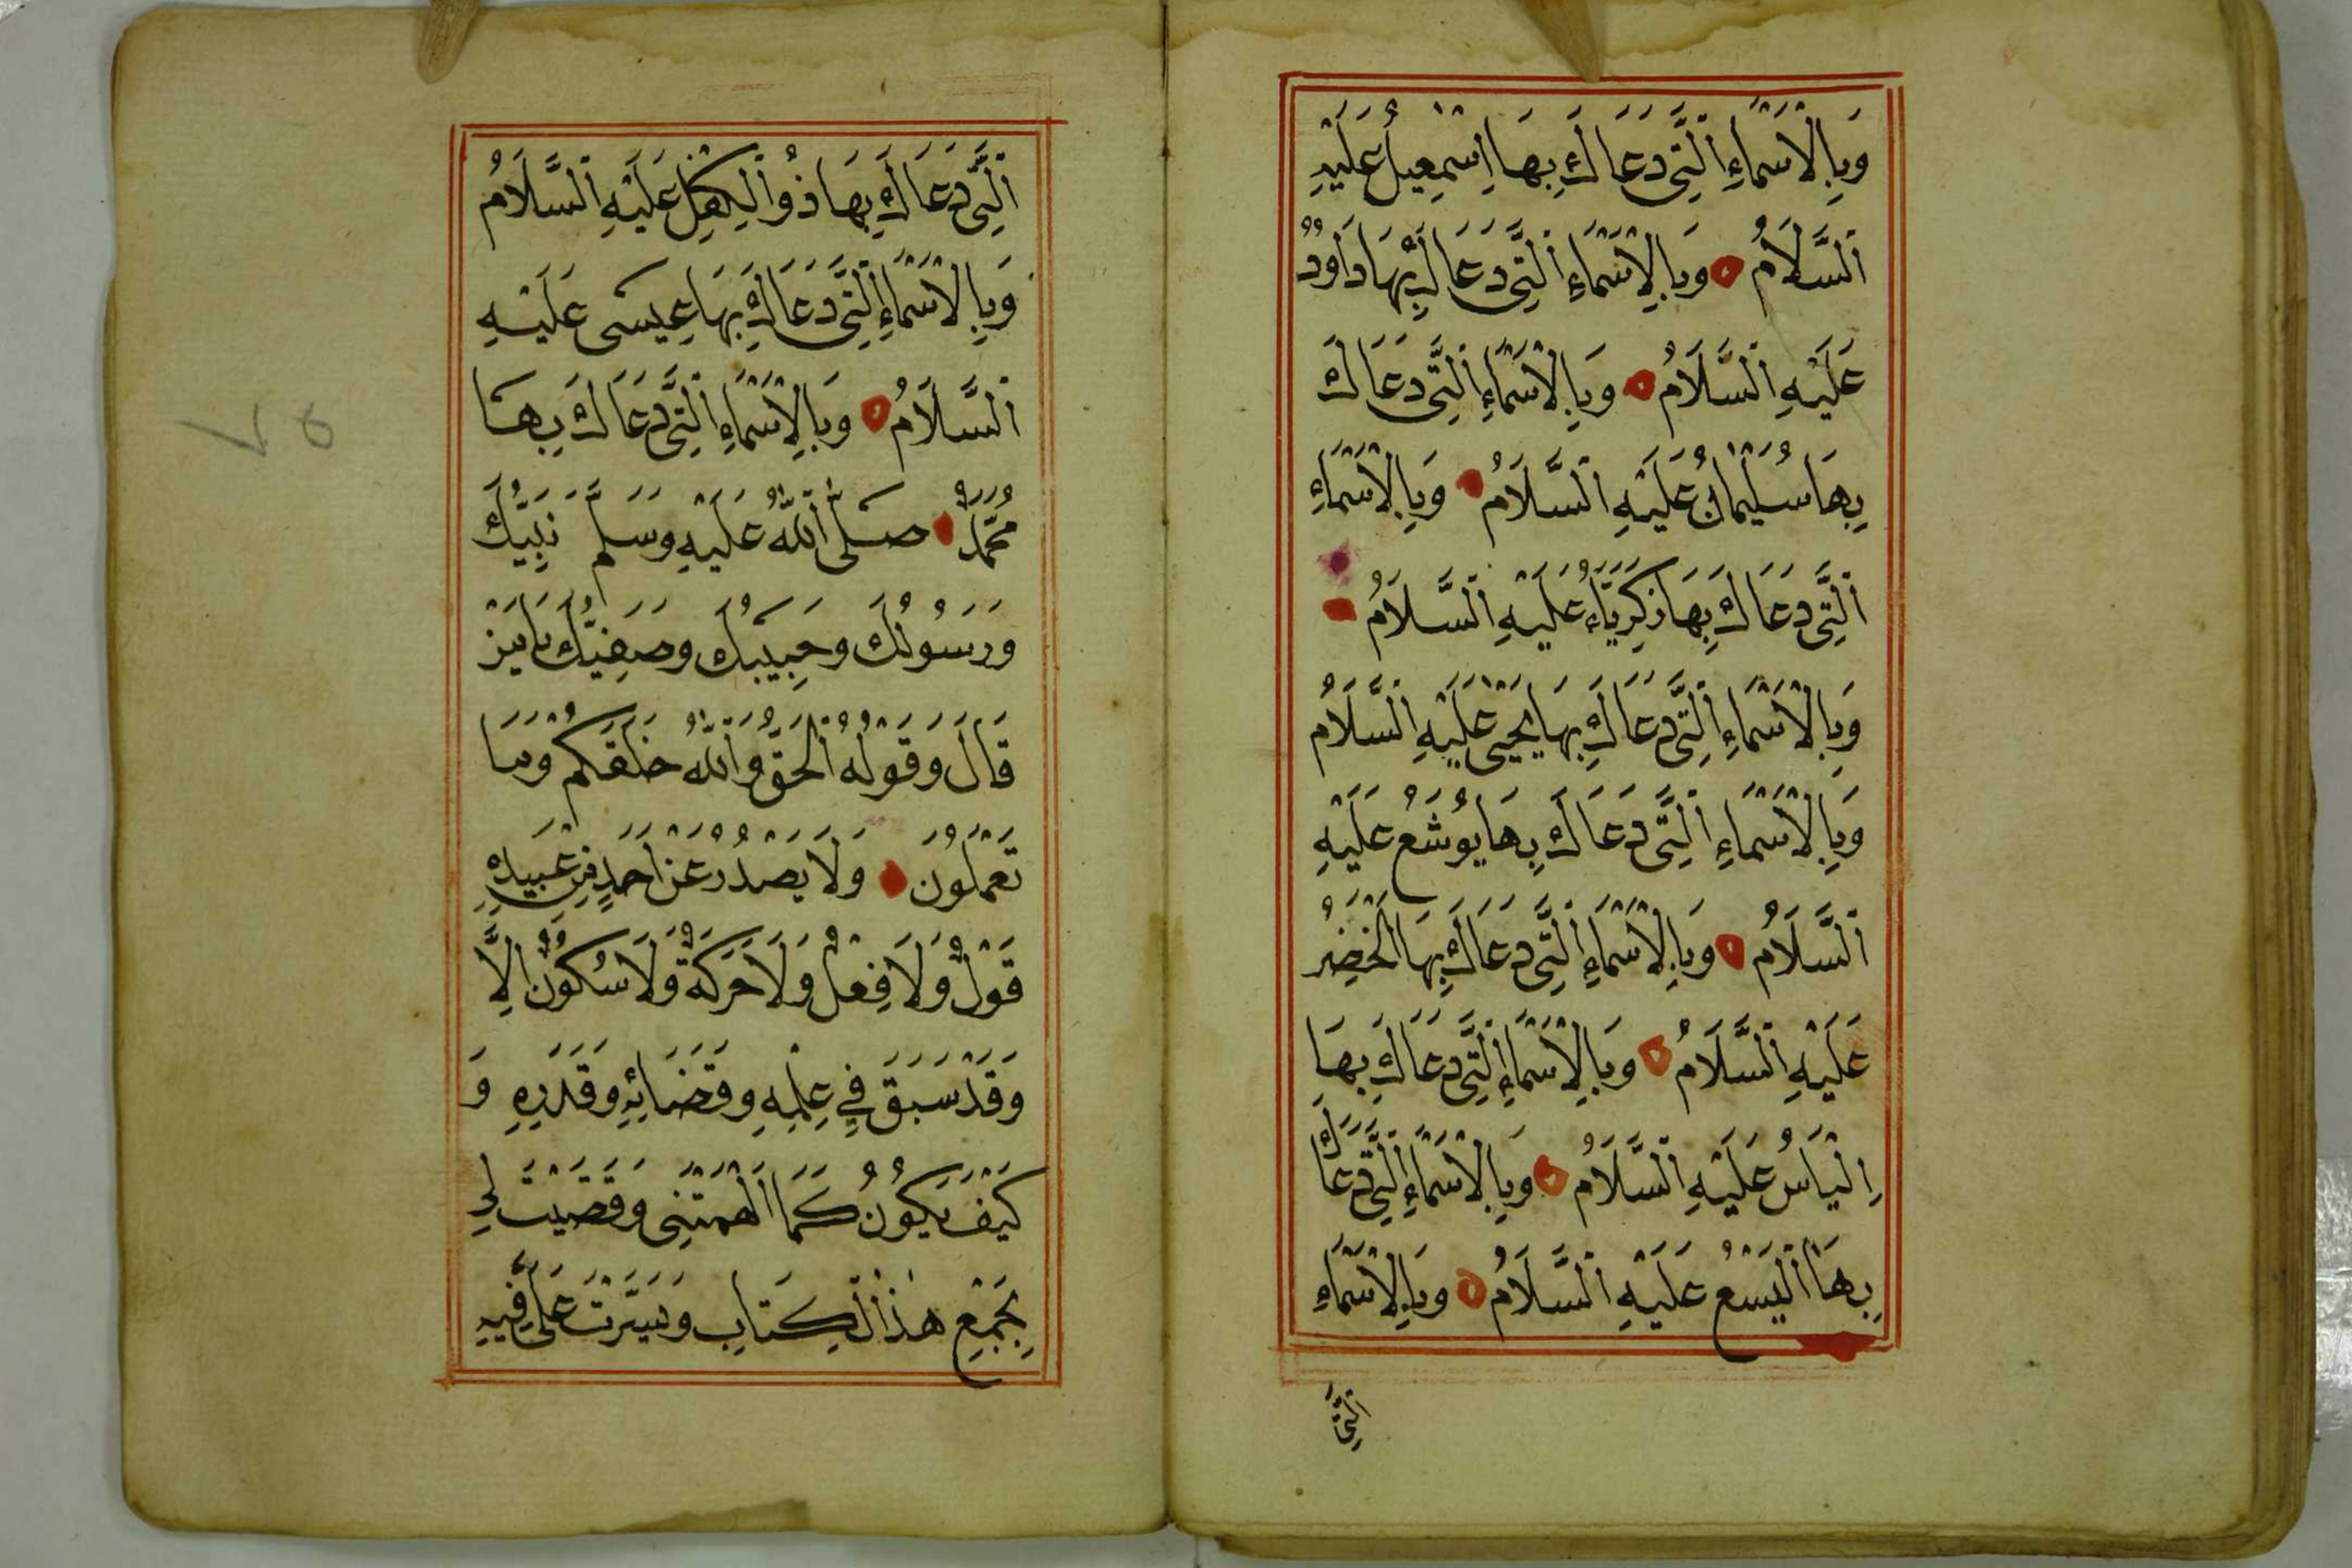 وَبِالْاَسْمَاءِ الَّتِى دَعَاكَ بِهَا اِسْمٰعِيلُ عَلَيْهِ
السَّلَامُ وَبِالْاَسْمَاءِ الَّتِى دَعَاكَ بِهَا دَاوُدُ
عَلَيْهِ السَّلَامُ وَبِالْاَسْمَاءِ الَّتِى دَعَاكَ
بِهَا سُلَيْمٰانُ عَلَيْهِ السَّلَامُ وَبِالْاَسْمَاءِ
الَّتِى دَعَاكَ بِهَا زَكَرِيَّاءُ عَلَيْهِ السَّلَامُ
وَبِالْاَسْمَاءِ الَّتِى دَعَاكَ بِهَا يَحْيٰى عَلَيْهِ السَّلَامُ
وَبِالْاَسْمَاءِ الَّتِى دَعَاكَ بِهَا يُوشَعُ عَلَيْهِ
السَّلَامُ وَبِالْاَسْمَاءِ الَّتِى دَعَاكَ بِهَا الْخَضِرُ
عَلَيْهِ السَّلَامُ وَبِالْاَسْمَاءِ الَّتِى دَعَاكَ بِهَا
اِلْيَاسُ عَلَيْهِ السَّلَامُ وَبِالْاَسْمَاءِ الَّتِى دَعَاكَ
بِهَا الْيَسَعُ عَلَيْهِ السَّلَامُ وَبِالْاَسْمَاءِ
الَّتِى
الَّتِى دَعَاكَ بِهَا ذُو الْكِفْلِ عَلَيْهِ السَّلَامُ
وَبِالْاَسْمَاءِ الَّتِى دَعَاكَ بِهَا عِيسَى عَلَيْهِ
السَّلَامُ وَبِالْاَسْمَاءِ الَّتِى دَعَاكَ بِهَا
مُحَمَّدٌ صَلَّى اللّٰهُ عَلَيْهِ وَسَلَّمَ نَبِيُّكَ
وَرَسُولُكَ وَحَبِيبُكَ وَصَفِيُّكَ يَامَنْ
قَالَ وَقَوْلُهُ الْحَقُّ وَاللّٰهُ خَلَقَكُمْ وَمَا
تَعْمَلُونَ وَلَا يَصْدُرُ عَنْ اَحَدٍ مِنْ عَبِيدِهِ
قَوْلٌ وَلَا فِعْلٌ وَلَا حَرَكَةٌ وَلَا سُكُونٌ اِلَّا
وَقَدْ سَبَقَ فِي عِلْمِهِ وَقَضَائِهِ وَقَدَرِهِ وَ
كَيْفَ يَكُونُ كَمَا اَلْهَمْتَنِى وَقَضَيْتَ لِي
بِجَمْعِ هٰذَا الْكِتَابِ وَيَسَّرْتَ عَلَيَّ فِيهِ